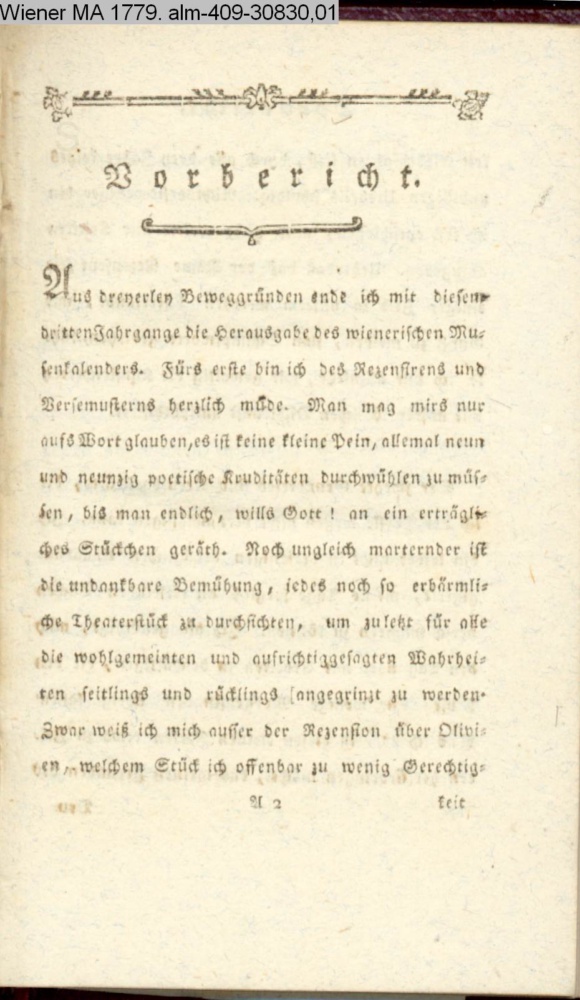 Wiener MA 1779. alm-409-30830,01
Vorbericht.
Aus dreyerley Beweggründen ende ich mit diesem
dritten Jahrgange die Herausgabe des wienerischen Mu-
senkalenders. Fürs erste bin ich des Rezensirens und
Versemusterns herzlich müde. Man mag mirs nur
aufs Wort glauben, es ist keine kleine Pein, allemal neun
und neunzig poetische Kruditäten durchwühlen zu müs-
sen, bis man endlich, wills Gott! an ein erträgli-
ches Stückchen geräth. Noch ungleich marternder ist
die undankbare Bemühung, jedes noch so erbärmli-
che Theaterstück zu durchsichten, um zuletzt für alle
die wohlgemeinten und aufrichtiggesagten Wahrhei-
ten seitlings und rücklings [angegrinzt zu werden.
Zwar weiß ich mich ausser der Rezension über Olivi-
en, welchem Stück ich offenbar zu wenig Gerechtig-
A 2 keit